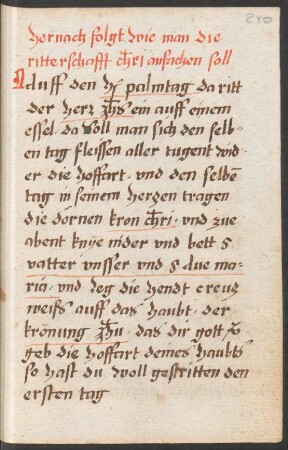 240
hernach folgt wie man die
ritterschafft chri ansachen soll
Auff den hÿ palmtag da ritt
der herr Jhs ein auff einem
essel da soll man sich den selb-
en tag fleissen aller tugent wid-
er die hoffart · vnd den selbē
tag in seinem herzen tragen
die dornen kron chri · vnd zue
abent knÿe nider vnd bett 5
vatter vnsser vnd 5 aue ma-
ria · vnd leg die hendt creuz
weiß auff das haubt · der
krönung Jhu · das dir gott
geb die hoffart deines haubts
so hast du woll gestritten den
ersten tag